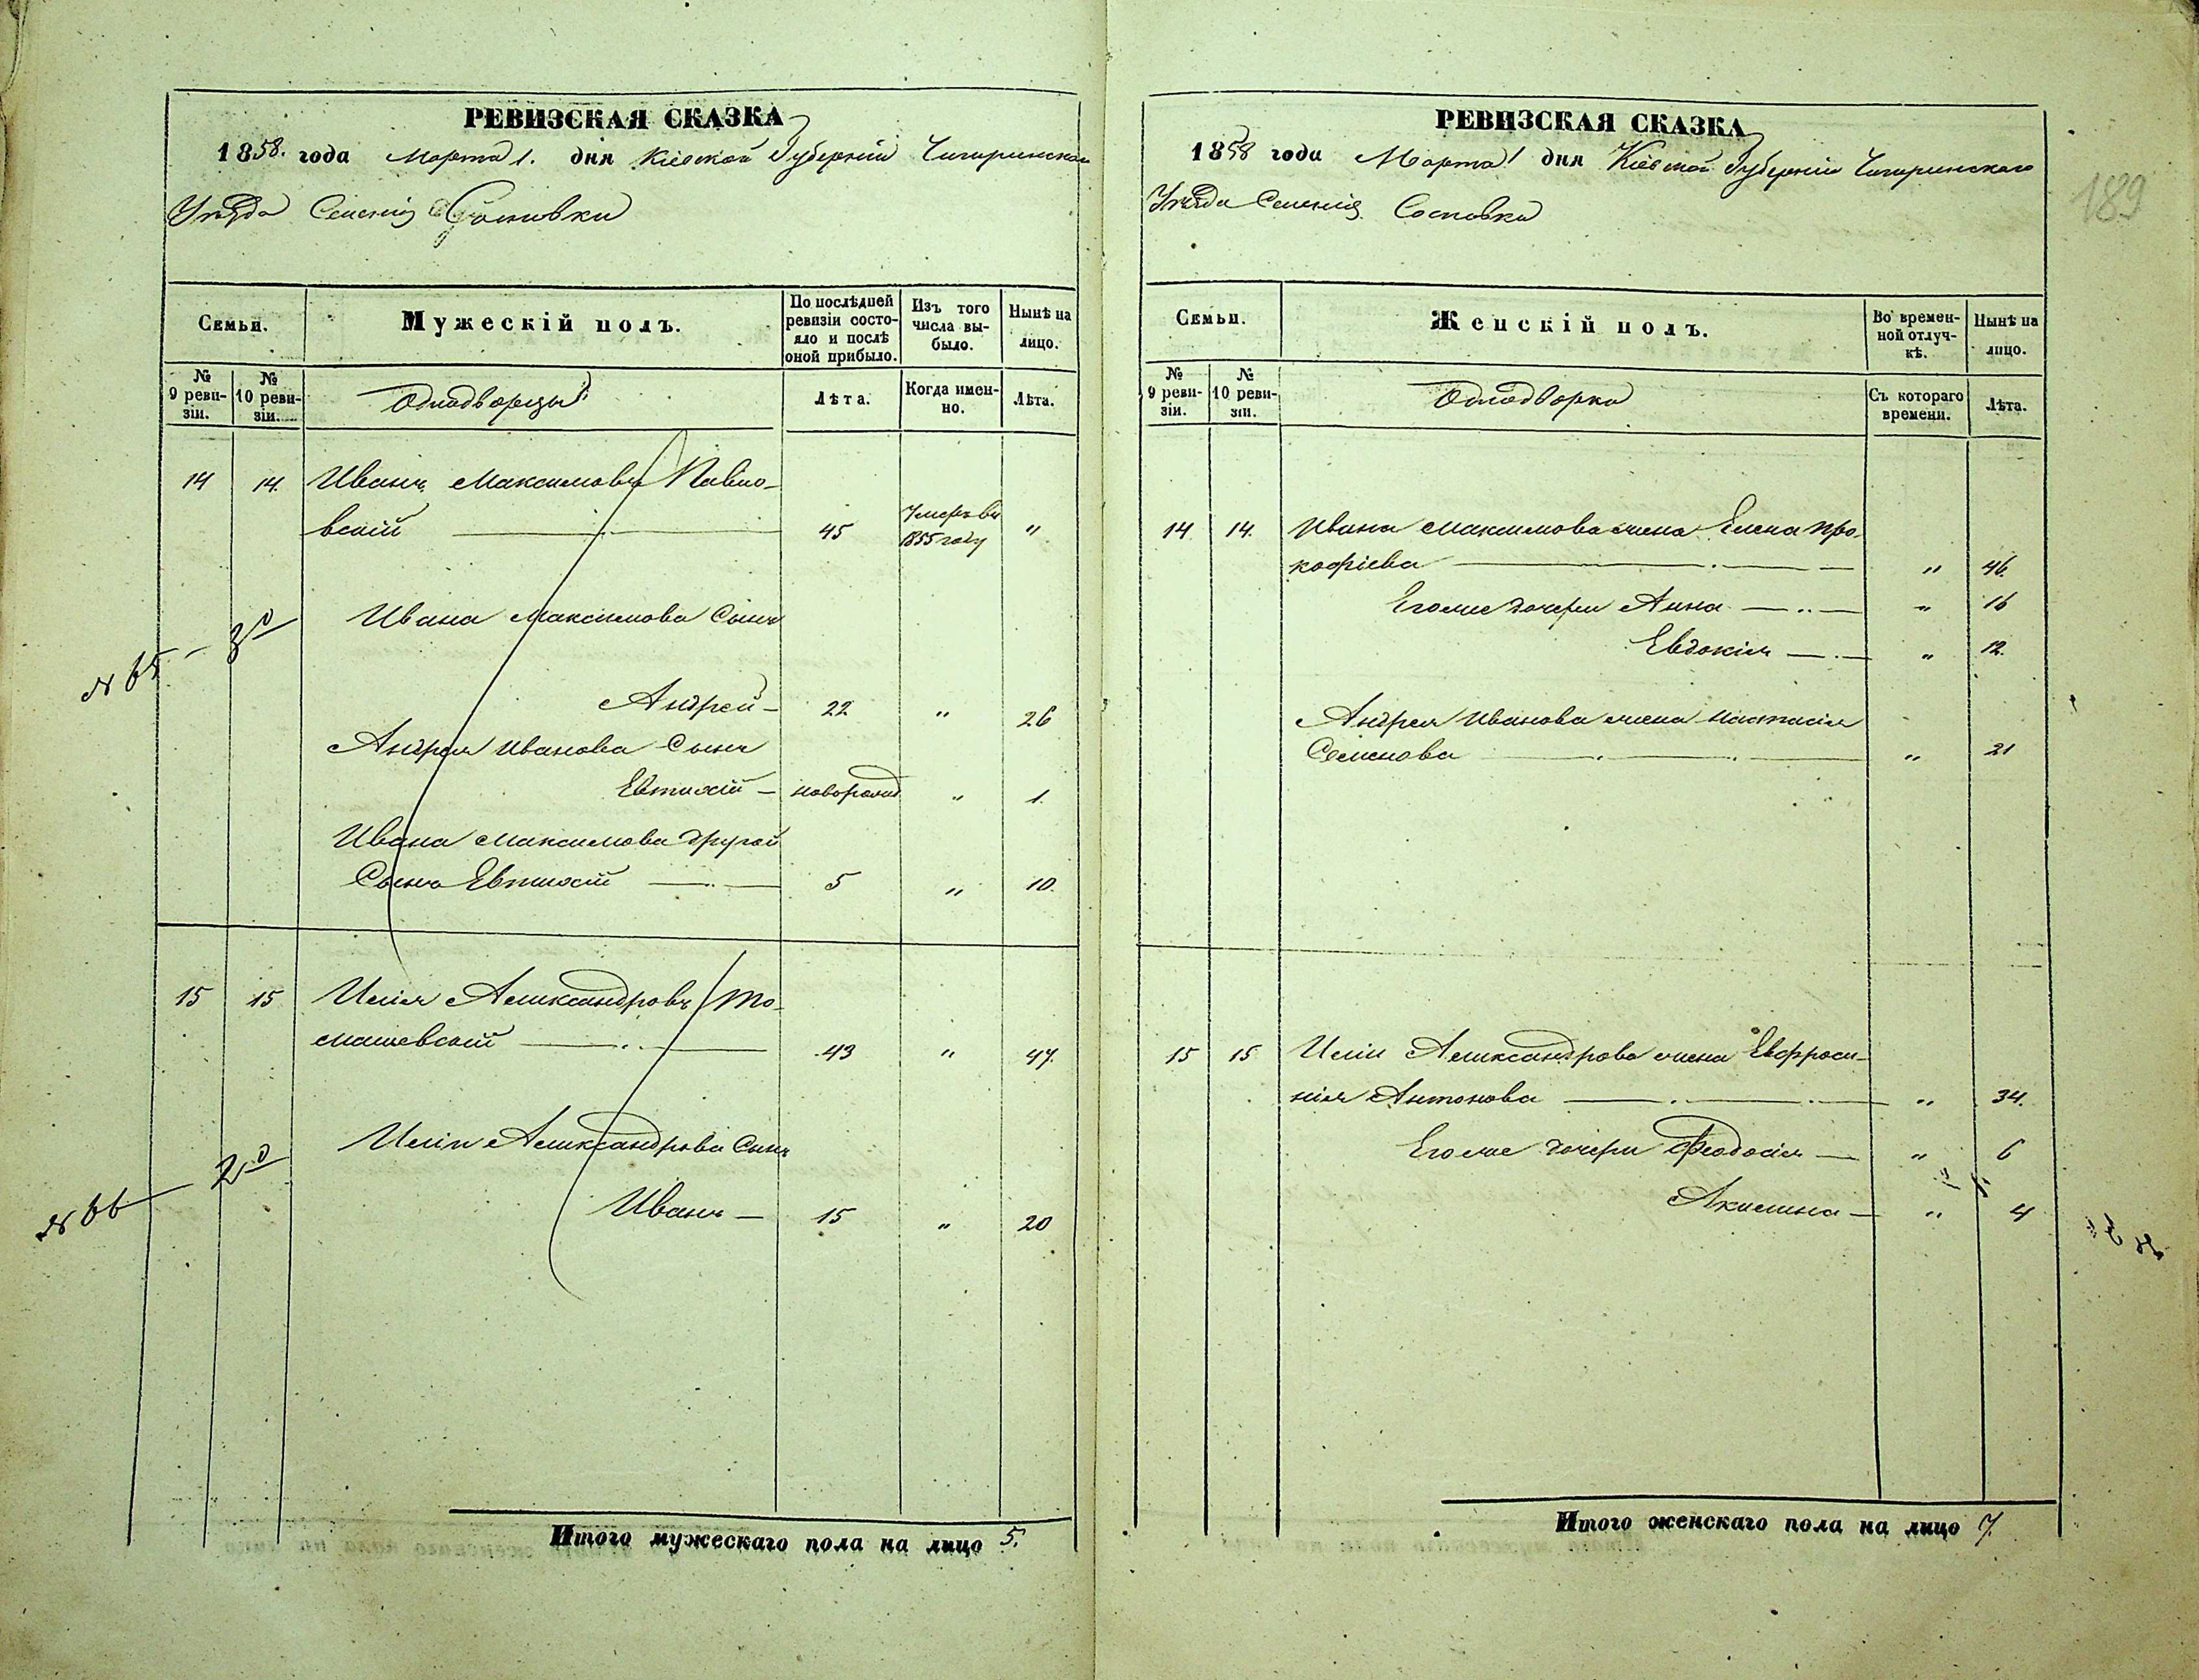 РЕВИЗСКАЯ СКАЗКА
1858. года Марта 1. дня Кіевской Губерніи Чигиринскаго
Уѣзда Селенія Сосновки
Семьи.
Мужескій полъ.
По послѣдней ревизіи состояло и послѣ оной прибыло.
Изъ того числа выбыло.
Нынѣ на лицо.
№ 9 ревизіи.
№ 10 ревизіи.
Однодворцы
Лѣта.
Когда именно.
Лѣта.
14 14. Иванъ Максимовъ Павло-
вскій 45 Умеръ въ 1855 году "
Ивана Максимова Сынъ
№ 65 - 3
Андрей 22 " 26
Андрея Иванова Сынъ
Евтихій новорожд " 1.
Ивана Максимова другой
Сынъ Евтихій 5 " 10.
15 15 Илія Александровъ То-
машевскій 43 " 47.
Иліи Александрова Сынъ
№ 66 2
Иванъ 15 " 20
Итого мужескаго пола на лицо 5.
РЕВИЗСКАЯ СКАЗКА
1858 года Марта 1 дня Кіевской Губерніи Чигиринскаго
Уѣзда Селенія Сосновки
189
Семьи.
Женскій полъ.
Во временной отлучкѣ.
Нынѣ на лицо.
№ 9 ревизіи.
№ 10 ревизіи.
Однодворки
Съ котораго времени.
Лѣта.
14 14. Ивана Максимова жена Елена Про-
кофіева " 46.
Его же дочери Анна " 16
Евдокія " 12.
Андрея Иванова жена Настасія
Семенова " 21
15 15 Иліи Александрова жена Евфроси-
нія Антонова " 34.
Его же дочери Феодосія " 6
Акилина " 4
Итого женскаго пола на лицо 7.